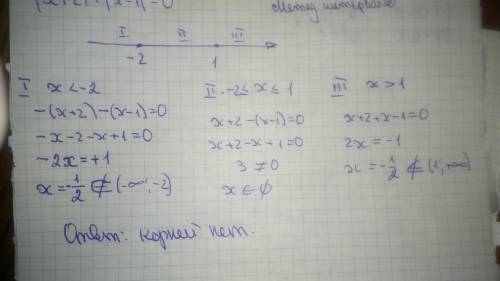 |x+2|+|x-1|=0
Метод интервалов
I II III
-2 1
I x<-2
-(x+2)-(x-1)=0
-x-2-x+1=0
-2x=+1
x=-1/2 ∉ (-∞; -2)
II -2≤x≤1
x+2-(x-1)=0
x+2-x+1=0
3≠0
x∈∅
III x>1
x+2+x-1=0
2x=-1
x=-1/2 ∉ (1, ∞)
Ответ: корней нет.